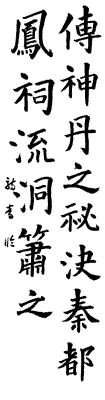 傳神丹之祕決秦都
鳳祠流洞簫之